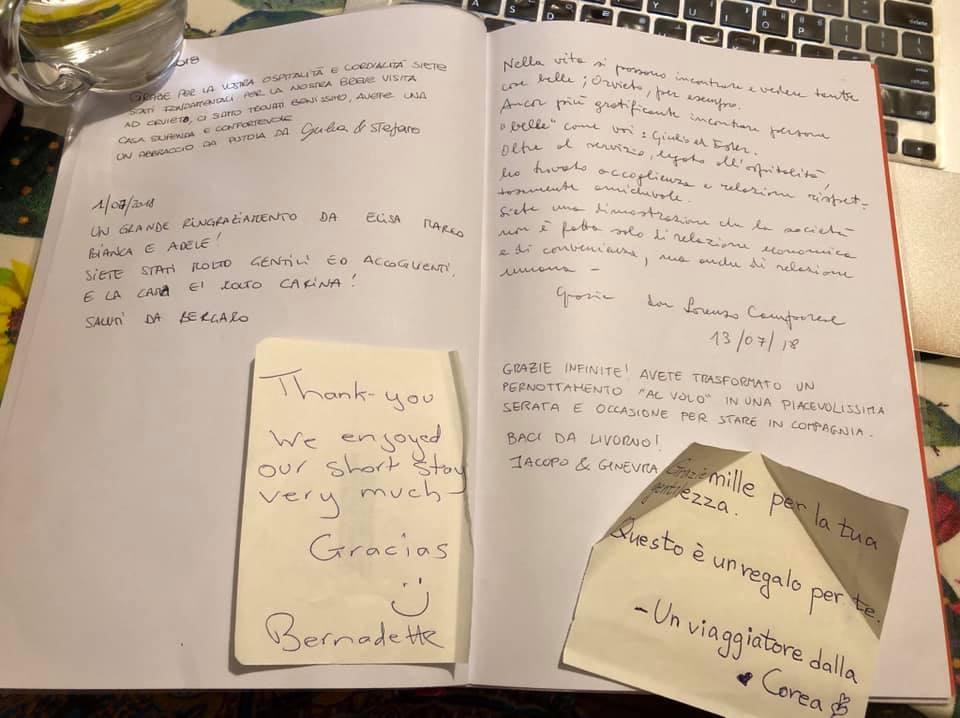 2018
GRAZIE PER LA VOSTRA OSPITALITÀ E CORDIALITÀ SIETE
STATI FONDAMENTALI PER LA NOSTRA BREVE VISITA
AD ORVIETO, CI SIAMO TROVATI BENISSIMO, AVETE UNA
CASA STUPENDA E CONFORTEVOLE
UN ABBRACCIO DA PISTOIA DA Giulia & Stefano
1/07/2018
UN GRANDE RINGRAZIAMENTO DA ELISA MARCO
BIANCA E ADELE!
SIETE STATI MOLTO GENTILI ED ACCOGLIENTI.
E LA CASA E' MOLTO CARINA!
SALUTI DA BERGAMO
Thank-you
We enjoyed
our short stay
very much
Gracias
Bernadette
Nella vita si possono incontrare e vedere tante
cose belle; Orvieto, per esempio.
Ancor più gratificante incontrare persone
"belle" come voi: Giulio ed Ester.
Oltre al servizio, legato all'ospitalità,
ho trovato accoglienza e relazione rispet-
tosamente amichevole.
Siete una dimostrazione che la società
non è fatta solo di relazione economica
e di convenienza, ma anche di relazione
umana -
Grazie don Lorenzo
13/07/18
GRAZIE INFINITE! AVETE TRASFORMATO UN
PERNOTTAMENTO "AL VOLO" IN UNA PIACEVOLISSIMA
SERATA E OCCASIONE PER STARE IN COMPAGNIA.
BACI DA LIVORNO!
JACOPO & GINEVRA
Grazie mille per la tua
gentilezza.
Questo è un regalo per te.
- Un viaggiatore dalla
Corea